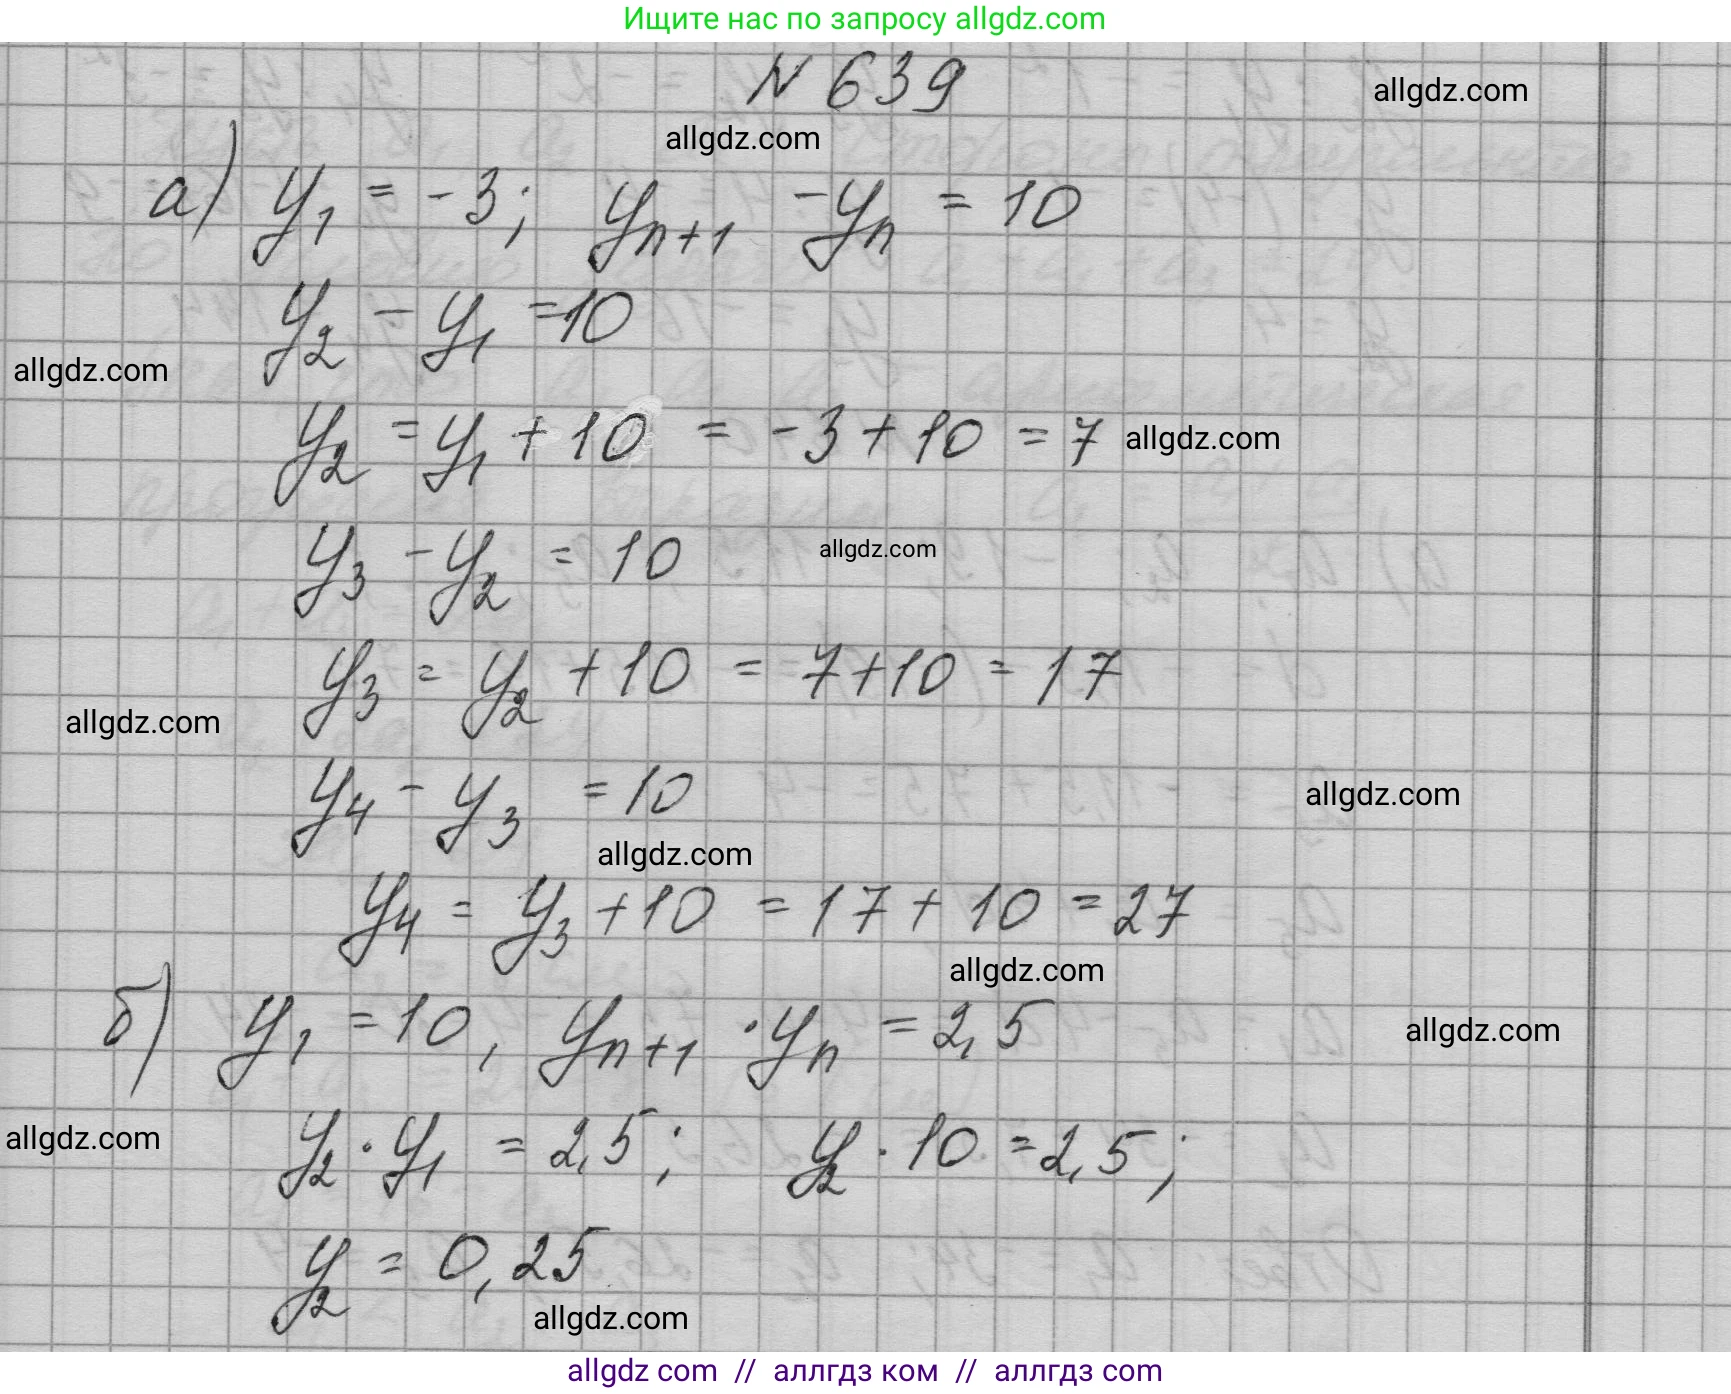 Ищите нас по запросу allgdz.com
№ 639
allgdz.com
allgdz.com
а) y₁ = -3; yₙ₊₁ - yₙ = 10
y₂ - y₁ = 10
allgdz.com
y₂ = y₁ + 10 = -3 + 10 = 7
allgdz.com
y₃ - y₂ = 10
allgdz.com
y₃ = y₂ + 10 = 7 + 10 = 17
allgdz.com
y₄ - y₃ = 10
allgdz.com
allgdz.com
y₄ = y₃ + 10 = 17 + 10 = 27
allgdz.com
б) y₁ = 10, yₙ₊₁ · yₙ = 2,5
allgdz.com
y₂ · y₁ = 2,5; y₂ · 10 = 2,5;
allgdz.com
y₂ = 0,25
allgdz.com
allgdz com // аллгдз ком // аллгдз com